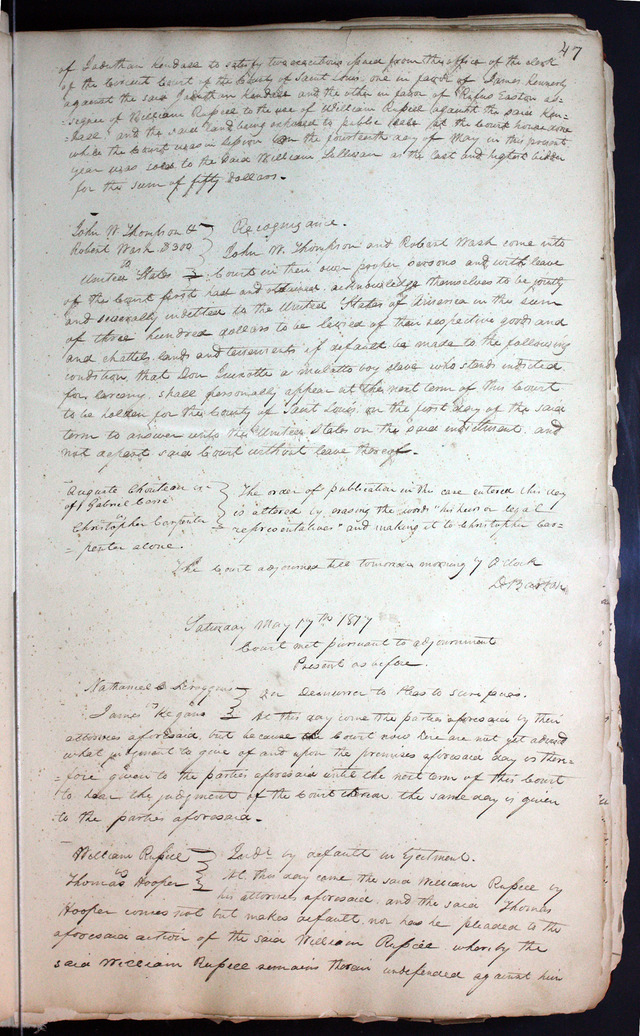 47
of Jonathan Kendall to satisfy two executions issued from the office of the clerk
of the Circuit Court of the County of Saint Louis, one in favor of James Kennerly
against the said Jonathan Kendall and the other in favor of Rufus Easton as-
signee of William Russell to the use of William Russell against the said Ken-
dall and the said land being exposed to public sale at the Court house door
while the Court was in session on the fourteenth day of May in this present
year was sold to the said William Sullivan as the last and highest bidder
for the sum of fifty Dollars.
John W. Thompson &
Robert Wash $300
Recognizance.
John W. Thompson and Robert Wash come into
United States
Court in their own proper persons and with leave
of the Court first had and obtained, acknowledge themselves to be jointly
and severally indebted to the United States of America in the sum
of three hundred dollars to be levied of their respective goods and
and chattels lands and tenements if default be made to the following
condition, that Don a mulatto boy slave who stands indicted
for larceny, shall personally appear at the next term of this Court
to be holden for the County of Saint Louis, on the first day of the said
term to answer unto the United States on the said indictment, and
not depart said Court without leave thereof.
Auguste Chouteau
of Gabriel Cerre
vs
Christopher Carpenter
The order of publication in the case entered this day
is altered by erasing the words "his heirs or legal
representatives" and making it to Christopher Car-
penter alone.
The Court adjourned till tomorrow morning 7 O'clock
D. Barton
Saturday May 17th 1817
Court met pursuant to adjournment
Present as before.
Nathaniel B. Scroggins
On Demurrer to Pleas to
James
At this day come the parties aforesaid by their
attornies aforesaid, but because the Court now here are not yet advised
what judgment to give of and upon the premises aforesaid day is there-
fore given to the parties aforesaid until the next term of this Court
to hear the judgment of the Court therein the same day is given
to the parties aforesaid.
William Russell
vs
Thomas Hooper
Judt. by default in Ejectment.
At this day came the said William Russell by
his attornies aforesaid, and the said Thomas
Hooper comes not but makes default, nor has he pleaded to the
aforesaid action of the said William Russell whereby the
said William Russell remains therein undefended against him